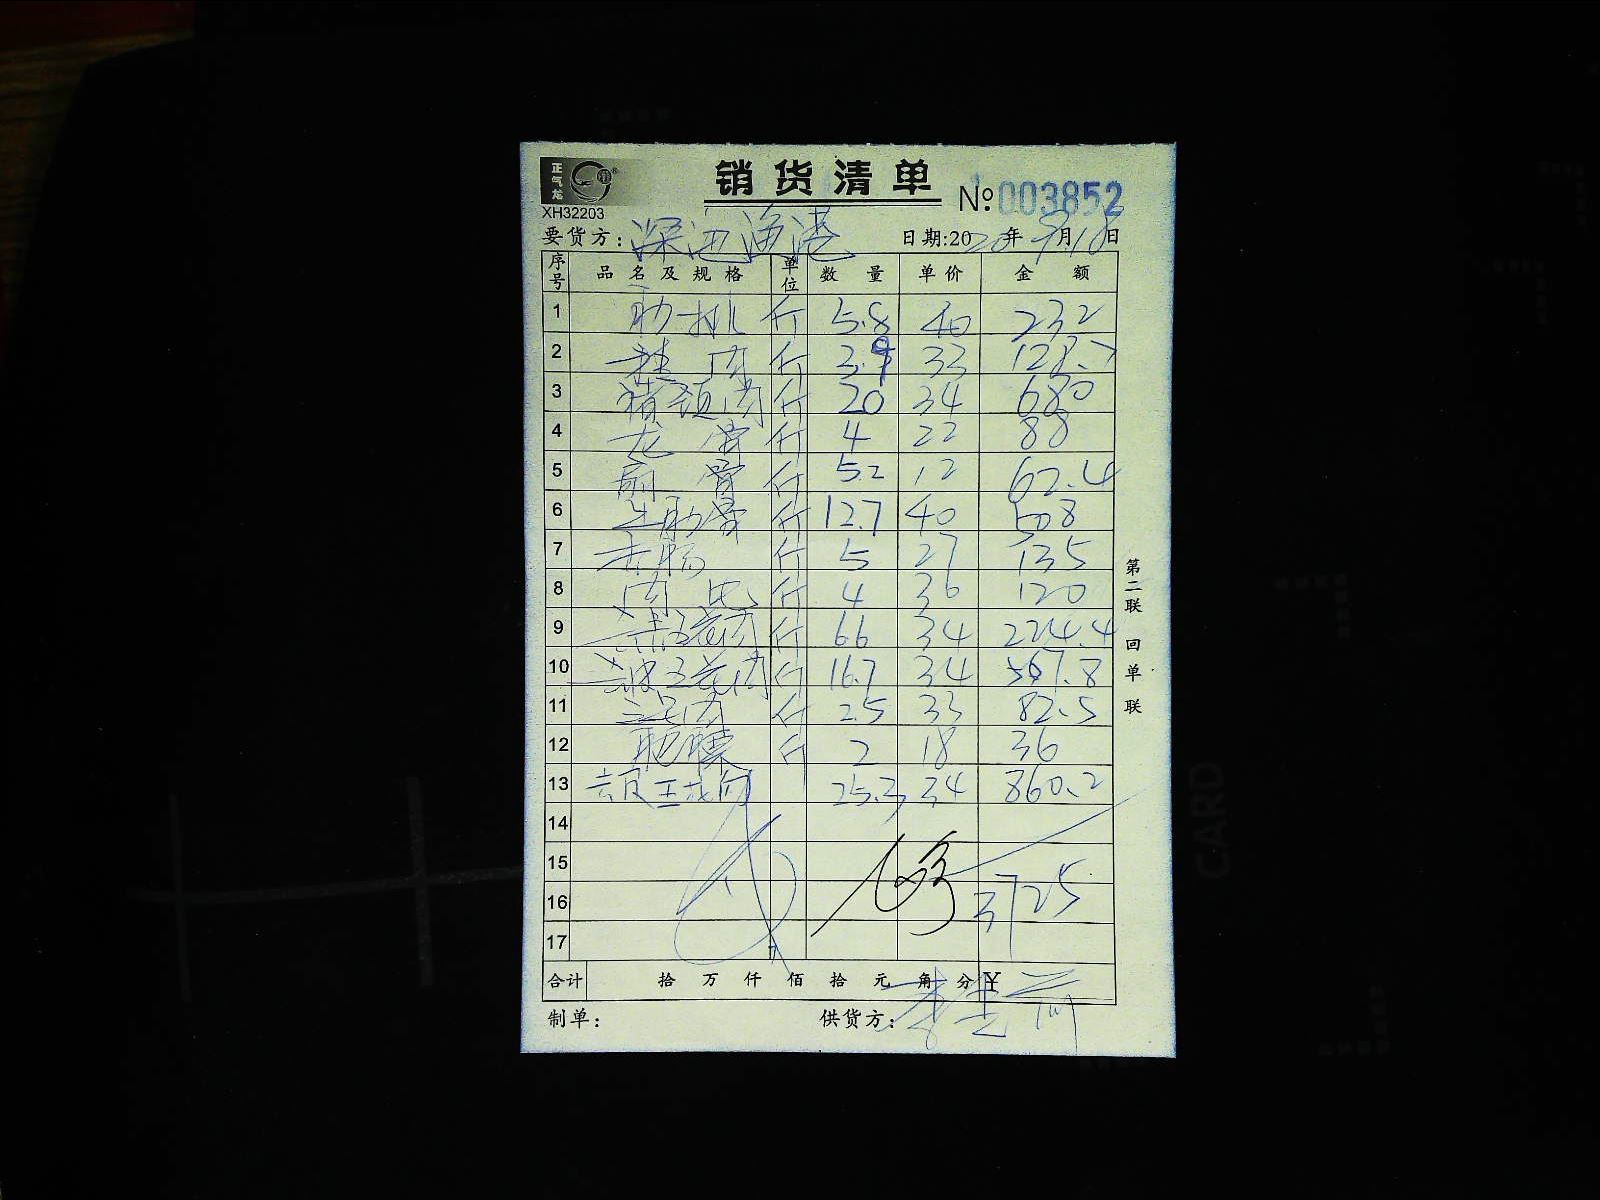 正气龙
销货清单
XH32203
№ 003852
要货方: 深海渔港 日期:2020年9月18日
序号 品名及规格 单位 数量 单价 金额
1 肋排 斤 5.8 40 232
2 肉 斤 3.9 33 128.7
3 猪颈肉 斤 20 34 680
4 龙骨 斤 4 22 88
5 扇骨 斤 5.2 12 62.4
6 肋骨 斤 12.7 40 508
7 斤 5 27 135
8 肉 斤 4 30 120
9 五花肉 斤 6.6 34 224.4
10 五花肉 斤 16.7 34 567.8
11 肉 斤 2.5 33 82.5
12 肥膘 斤 2 18 36
13 去皮五花肉 25.3 34 860.2
14
15
16 3725
17
合计 拾 万 仟 佰 拾 元 角 分 ¥
制单: 供货方:
第二联 回单联
CARD